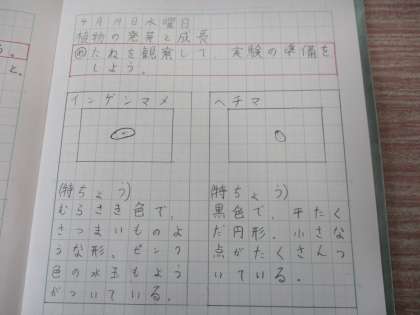 う。
と。
4月19日水曜日
植物の発芽と成長
め たねを観察して、実験の準備を
しよう。
インゲンマメ
ヘチマ
(特ちょう)
むらさき色で、
さつまいものよ
うな形。ピンク
色の水玉もよう
がついている。
(特ちょう)
黒色で、平たく
だ円形。小さな
点がたくさんつ
いている。